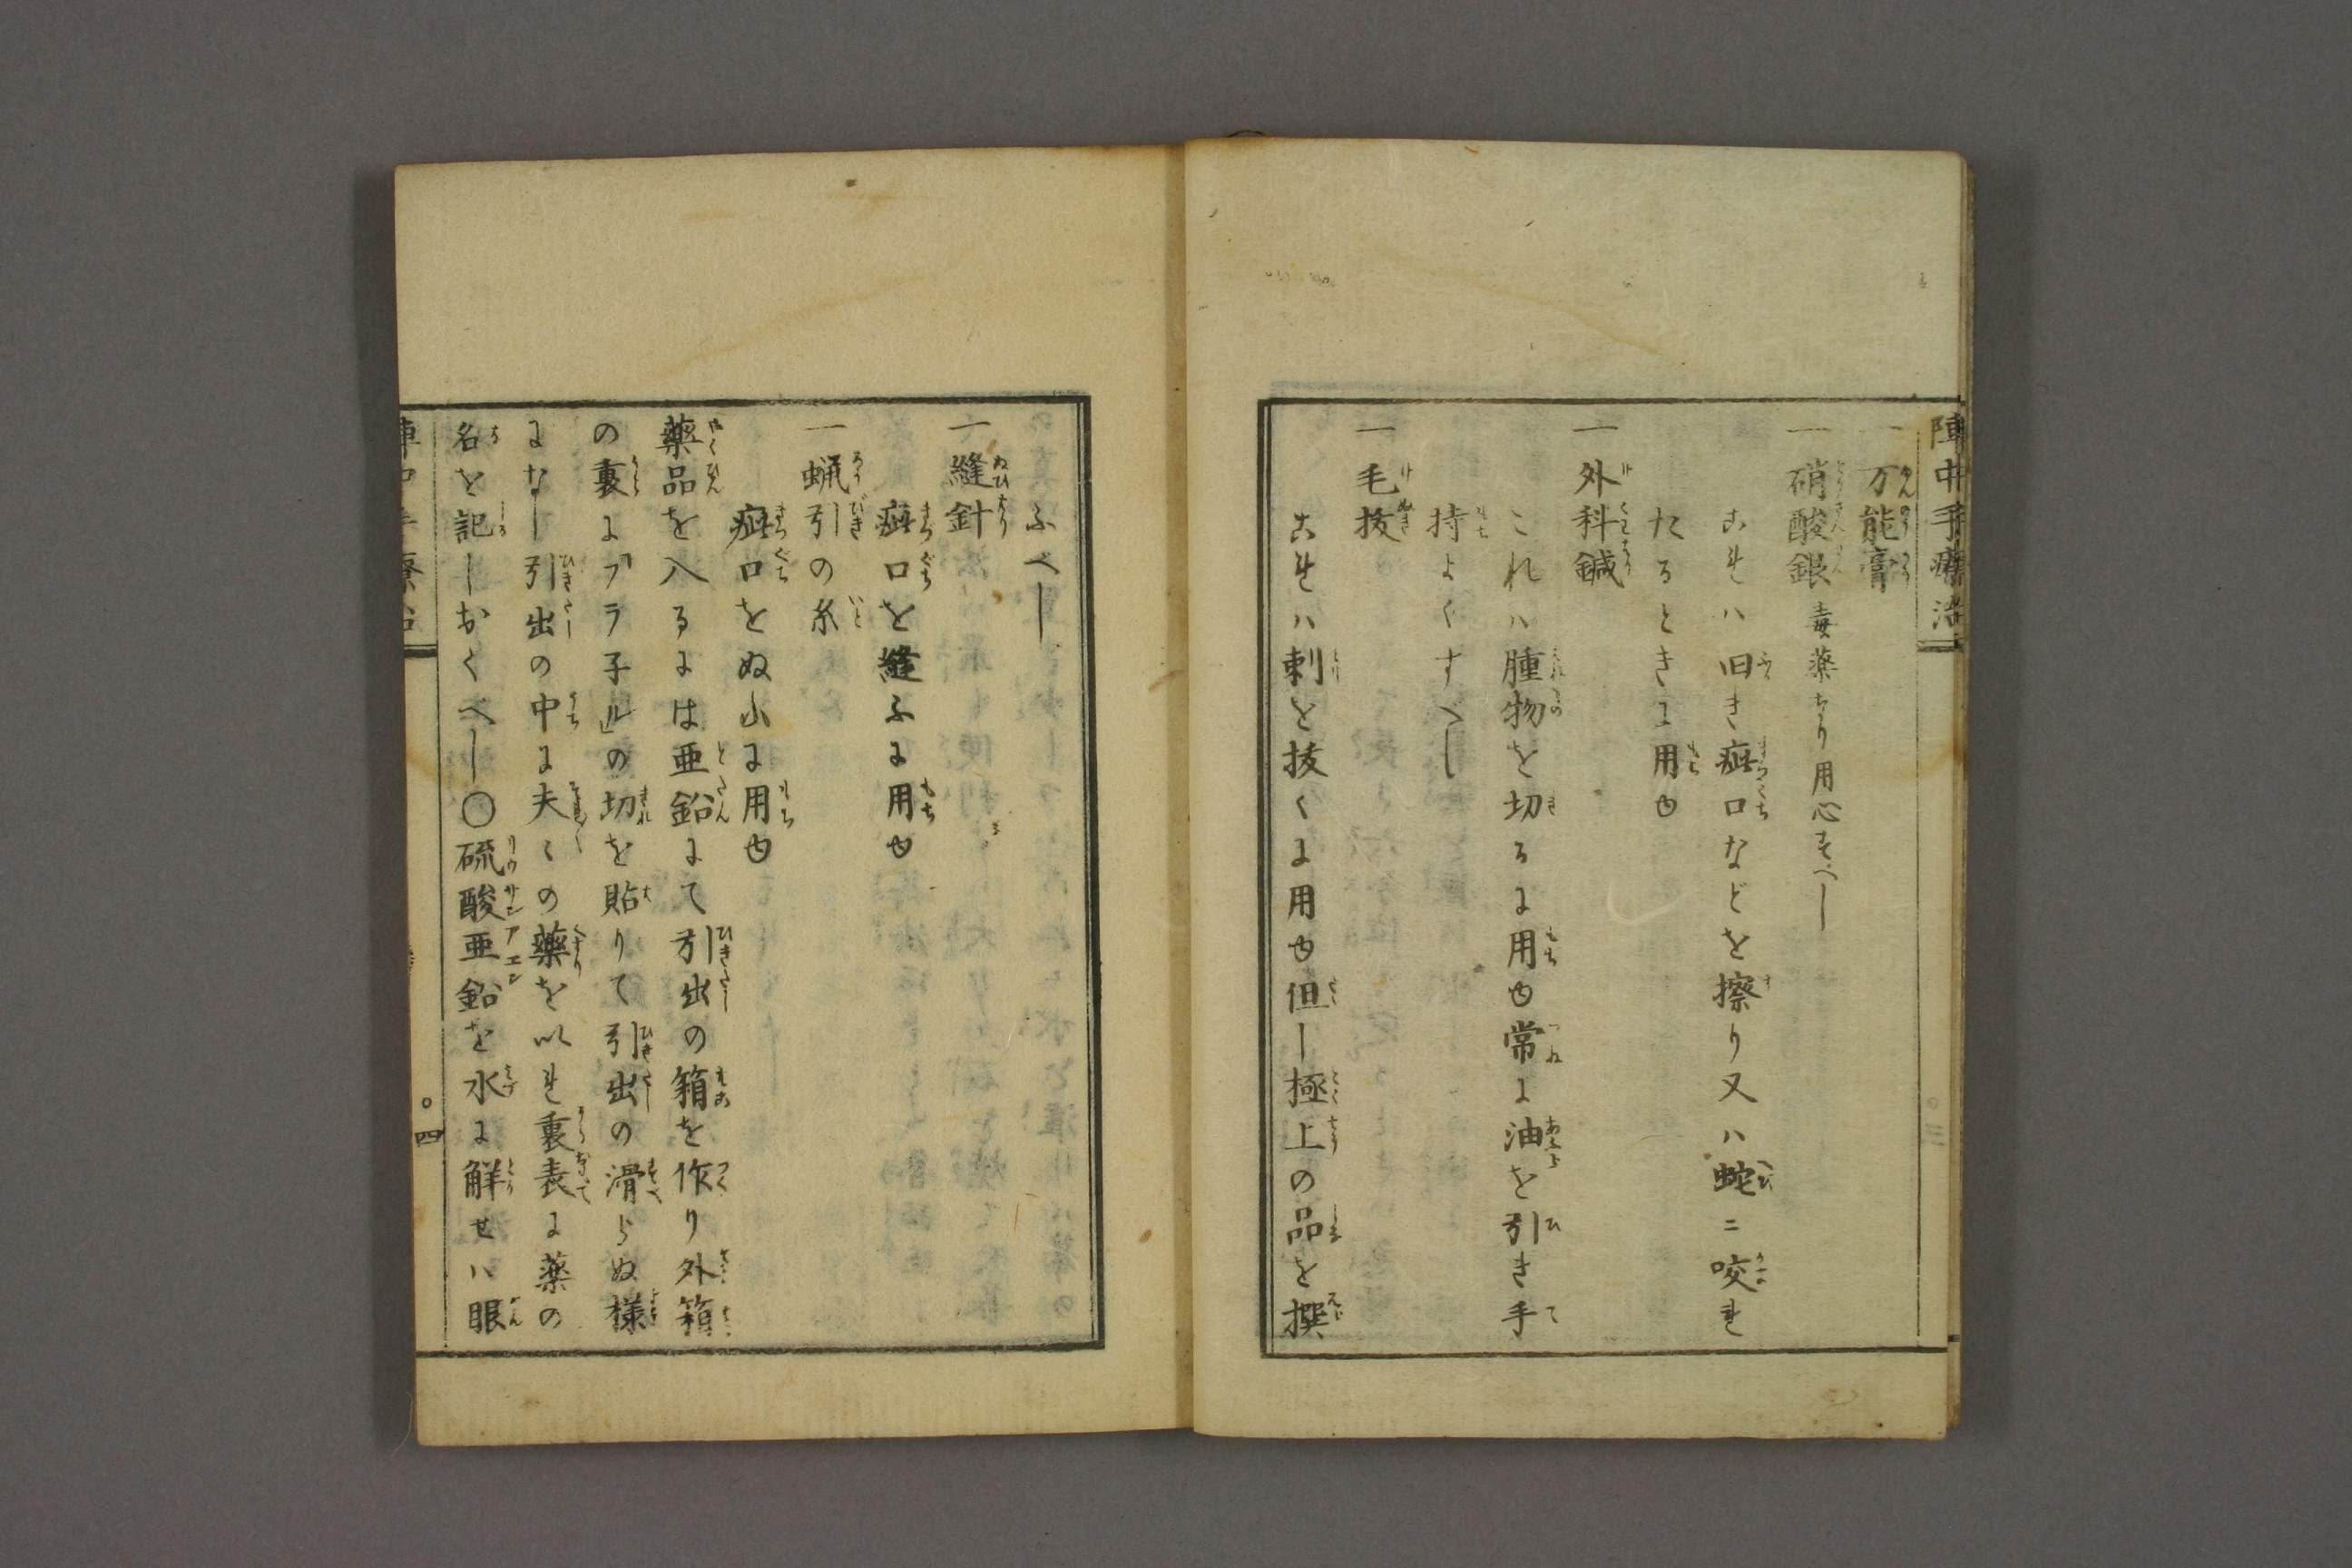 陣中手療治
一万能膏
一硝酸銀 毒薬なり用心すべし
これハ旧き疵口などを擦り又ハ蛇ニ咬れ
たるときに用ゆ
一外科鍼
これハ腫物を切るに用ゆ常に油を引き手
持よくすべし
一毛抜
これハ刺を抜くに用ゆ但し極上の品を撰
ふべし
一縫針
疵口を縫ふに用ゆ
一蝋引の糸
疵口をぬふに用ゆ
薬品を入るには亜鉛にて引出の箱を作り外箱
の裏に「フラ子ル」の切を貼りて引出の滑らぬ様
になし引出の中に夫〻の薬を以れ裏表に薬の
名を記しおくべし〇硫酸亜鉛を水に解せハ眼
陣中手療治
〇四